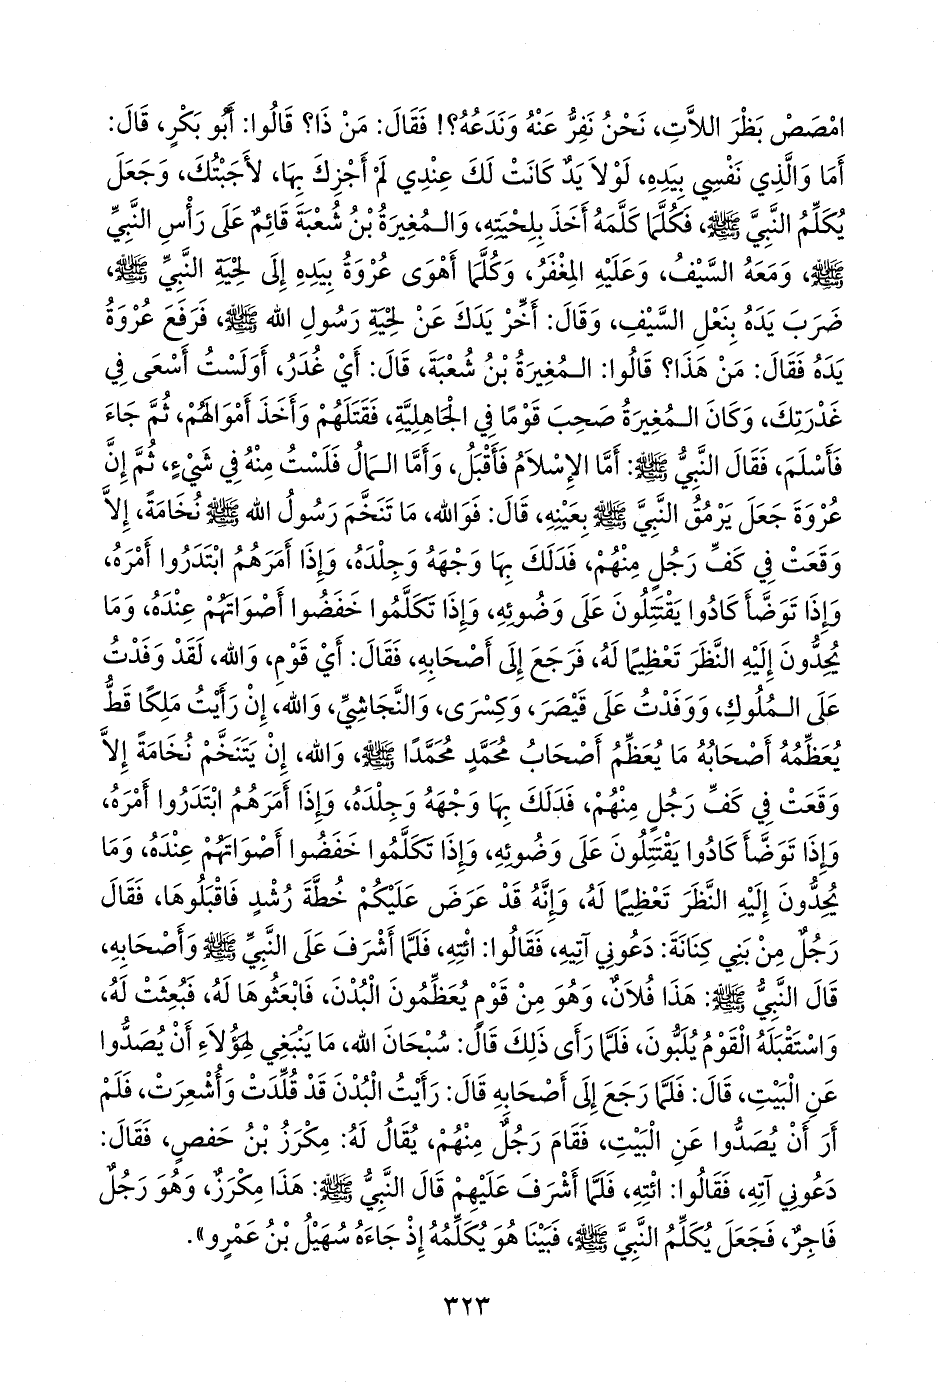 امْصَصْ بَظْرَ اللاَّتِ، نَحْنُ نَفِرُّ عَنْهُ وَنَدَعُهُ؟! فَقَالَ: مَنْ ذَا؟ قَالُوا: أَبُو بَكْرٍ، قَالَ:
أَمَا وَالَّذِي نَفْسِي بِيَدِهِ، لَوْلاَ يَدٌ كَانَتْ لَكَ عِنْدِي لَمْ أَجْزِكَ بِهَا، لأَجَبْتُكَ، وَجَعَلَ
يُكَلِّمُ النَّبِيَّ ﷺ، فَكُلَّمَا كَلَّمَهُ أَخَذَ بِلِحْيَتِهِ، وَالْـمُغِيرَةُ بْنُ شُعْبَةَ قَائِمٌ عَلَى رَأْسِ النَّبِيِّ
ﷺ، وَمَعَهُ السَّيْفُ، وَعَلَيْهِ الْمِغْفَرُ، وَكُلَّمَا أَهْوَى عُرْوَةُ بِيَدِهِ إِلَى لِحْيَةِ النَّبِيِّ ﷺ،
ضَرَبَ يَدَهُ بِنَعْلِ السَّيْفِ، وَقَالَ: أَخِّرْ يَدَكَ عَنْ لِحْيَةِ رَسُولِ الله ﷺ، فَرَفَعَ عُرْوَةُ
يَدَهُ فَقَالَ: مَنْ هَذَا؟ قَالُوا: الْـمُغِيرَةُ بْنُ شُعْبَةَ، قَالَ: أَيْ غُدَرُ، أَوَلَسْتُ أَسْعَى فِي
غَدْرَتِكَ، وَكَانَ الْـمُغِيرَةُ صَحِبَ قَوْمًا فِي الْجَاهِلِيَّةِ، فَقَتَلَهُمْ وَأَخَذَ أَمْوَالَهُمْ، ثُمَّ جَاءَ
فَأَسْلَمَ، فَقَالَ النَّبِيُّ ﷺ: أَمَّا الإِسْلاَمُ فَأَقْبَلُ، وَأَمَّا الْـمَالُ فَلَسْتُ مِنْهُ فِي شَيْءٍ، ثُمَّ إِنَّ
عُرْوَةَ جَعَلَ يَرْمُقُ النَّبِيَّ ﷺ بِعَيْنِهِ، قَالَ: فَوَالله، مَا تَنَخَّمَ رَسُولُ الله ﷺ نُخَامَةً، إِلاَّ
وَقَعَتْ فِي كَفِّ رَجُلٍ مِنْهُمْ، فَدَلَكَ بِهَا وَجْهَهُ وَجِلْدَهُ، وَإِذَا أَمَرَهُمُ ابْتَدَرُوا أَمْرَهُ،
وَإِذَا تَوَضَّأَ كَادُوا يَقْتَتِلُونَ عَلَى وَضُوئِهِ، وَإِذَا تَكَلَّمُوا خَفَضُوا أَصْوَاتَهُمْ عِنْدَهُ، وَمَا
يُحِدُّونَ إِلَيْهِ النَّظَرَ تَعْظِيمًا لَهُ، فَرَجَعَ إِلَى أَصْحَابِهِ، فَقَالَ: أَيْ قَوْمِ، وَالله، لَقَدْ وَفَدْتُ
عَلَى الْـمُلُوكِ، وَوَفَدْتُ عَلَى قَيْصَرَ، وَكِسْرَى، وَالنَّجَاشِيِّ، وَالله، إِنْ رَأَيْتُ مَلِكًا قَطُّ
يُعَظِّمُهُ أَصْحَابُهُ مَا يُعَظِّمُ أَصْحَابُ مُحَمَّدٍ مُحَمَّدًا ﷺ، وَالله، إِنْ يَتَنَخَّمْ نُخَامَةً إِلاَّ
وَقَعَتْ فِي كَفِّ رَجُلٍ مِنْهُمْ، فَدَلَكَ بِهَا وَجْهَهُ وَجِلْدَهُ، وَإِذَا أَمَرَهُمُ ابْتَدَرُوا أَمْرَهُ،
وَإِذَا تَوَضَّأَ كَادُوا يَقْتَتِلُونَ عَلَى وَضُوئِهِ، وَإِذَا تَكَلَّمُوا خَفَضُوا أَصْوَاتَهُمْ عِنْدَهُ، وَمَا
يُحِدُّونَ إِلَيْهِ النَّظَرَ تَعْظِيمًا لَهُ، وَإِنَّهُ قَدْ عَرَضَ عَلَيْكُمْ خُطَّةَ رُشْدٍ فَاقْبَلُوهَا، فَقَالَ
رَجُلٌ مِنْ بَنِي كِنَانَةَ: دَعُونِي آتِيهِ، فَقَالُوا: ائْتِهِ، فَلَمَّا أَشْرَفَ عَلَى النَّبِيِّ ﷺ وَأَصْحَابِهِ،
قَالَ النَّبِيُّ ﷺ: هَذَا فُلاَنٌ، وَهُوَ مِنْ قَوْمٍ يُعَظِّمُونَ الْبُدْنَ، فَابْعَثُوهَا لَهُ، فَبُعِثَتْ لَهُ،
وَاسْتَقْبَلَهُ الْقَوْمُ يُلَبُّونَ، فَلَمَّا رَأَى ذَلِكَ قَالَ: سُبْحَانَ الله، مَا يَنْبَغِي لِهَؤُلاَءِ أَنْ يُصَدُّوا
عَنِ الْبَيْتِ، قَالَ: فَلَمَّا رَجَعَ إِلَى أَصْحَابِهِ قَالَ: رَأَيْتُ الْبُدْنَ قَدْ قُلِّدَتْ وَأُشْعِرَتْ، فَلَمْ
أَرَ أَنْ يُصَدُّوا عَنِ الْبَيْتِ، فَقَامَ رَجُلٌ مِنْهُمْ، يُقَالُ لَهُ: مِكْرَزُ بْنُ حَفصٍ، فَقَالَ:
دَعُونِي آتِهِ، فَقَالُوا: ائْتِهِ، فَلَمَّا أَشْرَفَ عَلَيْهِمْ قَالَ النَّبِيُّ ﷺ: هَذَا مِكْرَزٌ، وَهُوَ رَجُلٌ
فَاجِرٌ، فَجَعَلَ يُكَلِّمُ النَّبِيَّ ﷺ، فَبَيْنَا هُوَ يُكَلِّمُهُ إِذْ جَاءَهُ سُهَيْلُ بْنُ عَمْرٍو».
٣٢٣